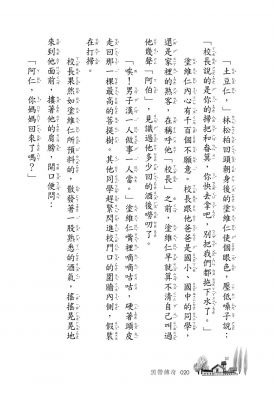 「土豆仁，」林松柏回頭朝身後的塗維仁使個眼色，壓低嗓子說：
「校長說的是你的掃把和畚箕，你快去拿吧，別把我們都拖下水了。」
塗維仁內心有千百個不願意。校長跟他爸爸是國小、國中的同學，
還是家裡的熟客，在稱呼他「校長」之前，塗維仁早就算不清自己叫過
他幾聲「阿伯」，見識過他多少回的酒後嘮叨了。
「唉！男子漢一人做事一人當。」塗維仁嘴裡嘀嘀咕咕，硬著頭皮
走回那一棵最高的菩提樹。其他同學趕緊閃進校門口的圍牆內側，假裝
在打掃。
校長果然如塗維仁所預料的，散發著一股熟悉的酒氣，搖搖晃晃地
來到他面前，摟著他的肩膀，開口便問：
「阿仁，你媽媽回來了嗎？」
黑帶傳奇 020